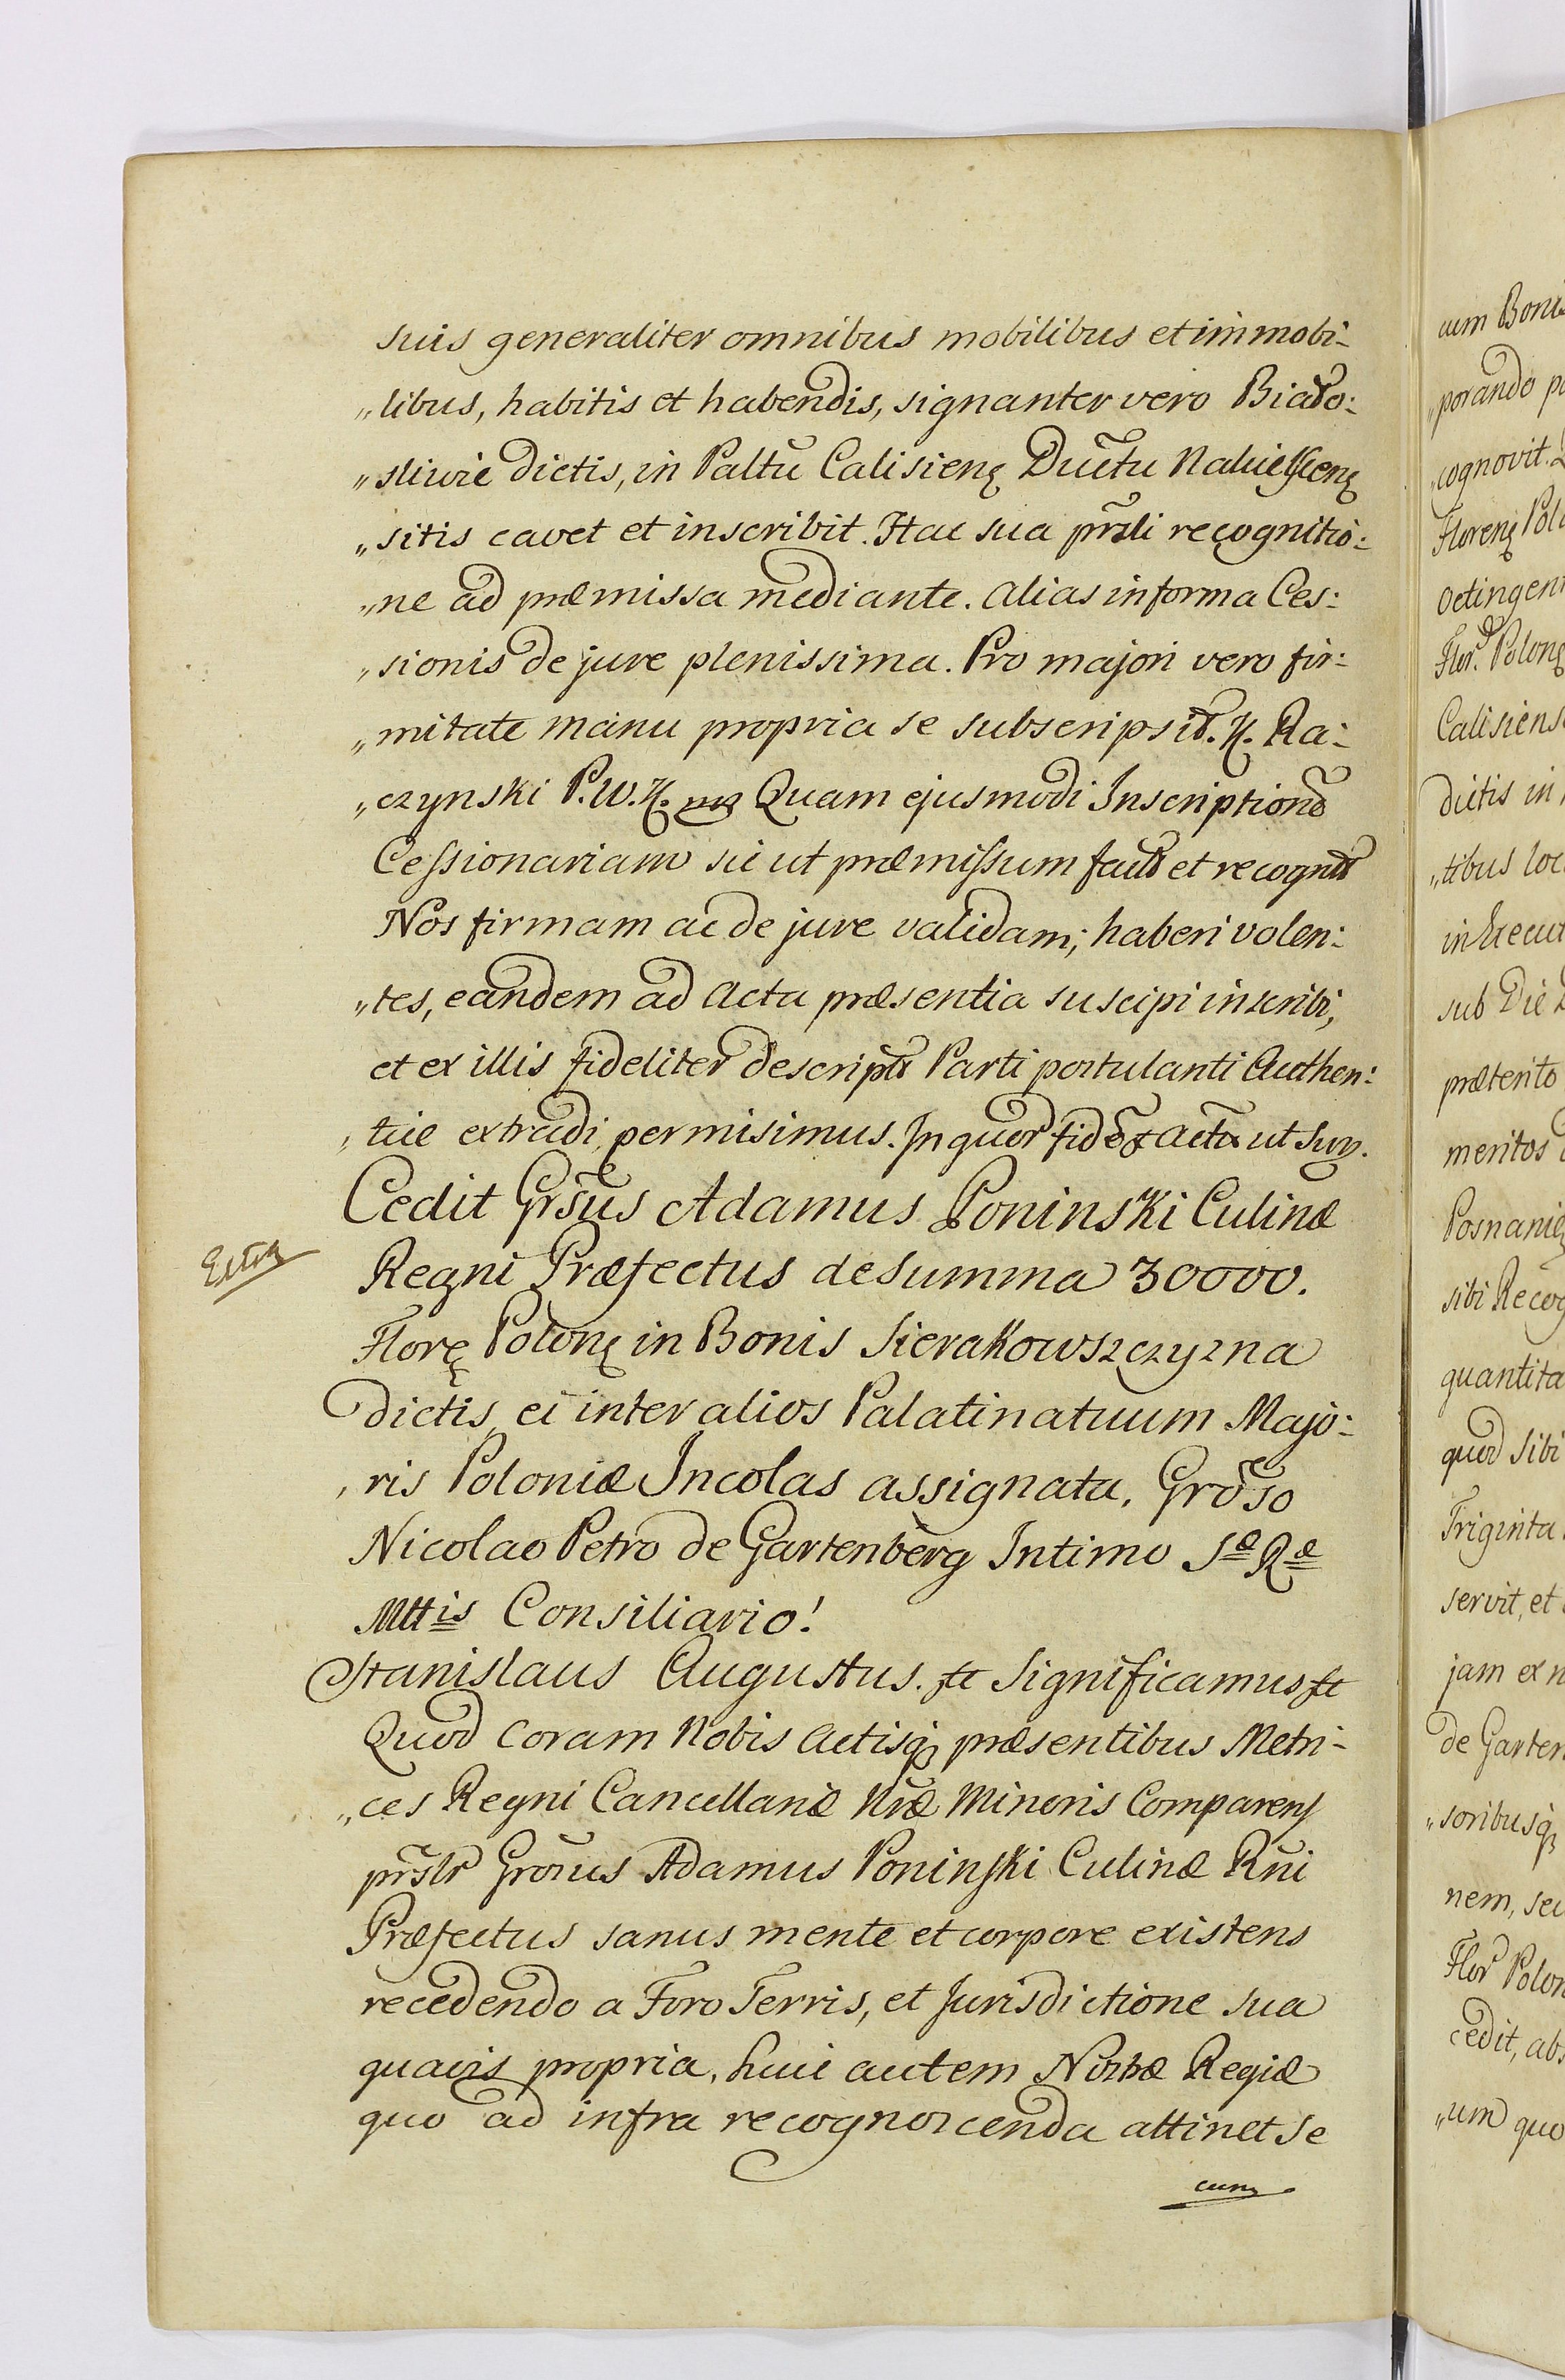 suis generaliter omnibus mobilibus et immobi-
„libus, habitis et habendis, signanter vero Biało:
„sliwie dictis, in Palttũ Calisienę Dučtu Nakielscenę
„sitis cavet et inscribit. Hac sua pñsti recognitio:
„ne ad præmissa mediante. Alias in forma Ces:
„sionis de jure plenissima. Pro majori vero fir:
„mitate manu propria se subscripsit. K. Ra:
„czynski P.W.K. mp Quam ejusmodi Inscriptionẽ
Cessionariam sic ut præmissum fact et recognit
Nos firmam ac de jure validam; haberi volen:
„tes, eandem ad Acta præsentia suscipi inscribi,
et ex illis fideliter descript Parti postulanti Authen:
„tice extradi permisimus. In quor fidẽ & Actũ ut Sup.
Cedit Grsus Adamus Poninski Culinæ
Extr
Regni Præfectus de summa 30000.
Florę Polonę in Bonis Sierakowszczyzna
dictis, ei inter alios Palatinatuum Majo:
„ris Poloniæ Incolas assignata, Groso
Nicolao Petro de Gartenberg Intimo Sæ Ræ
Mttis Consiliario!
Stanislaus Augustus. &c Significamus &c
Quod coram Nobis Actisq præsentibus Metri-
„ces Regni Cancellariæ Nræ Minoris Comparens
prslr Grosus Adamus Poninski Culinæ Rñi
Præfectus sanus mente et corpore existens
recedendo a Foro Terris, et Jurisdictione sua
quavis propria, huic autem Nostræ Regiæ
quo ad infra recognoscenda attinet se
cum
cum Bonis
„porando p
„cognovit.
Florenę Pol
Octingent
Flor. Polonę
Calisiens
dictis in
„tibus loc
in Execut
sub Die
præterito
meritos
Posnanię
sibi Recog
quantita
quod sibi
Triginta
servit, et
jam ex n
de Garten
„soribusq
nem, sec
Flor Polon
cedit, abs
„um quo